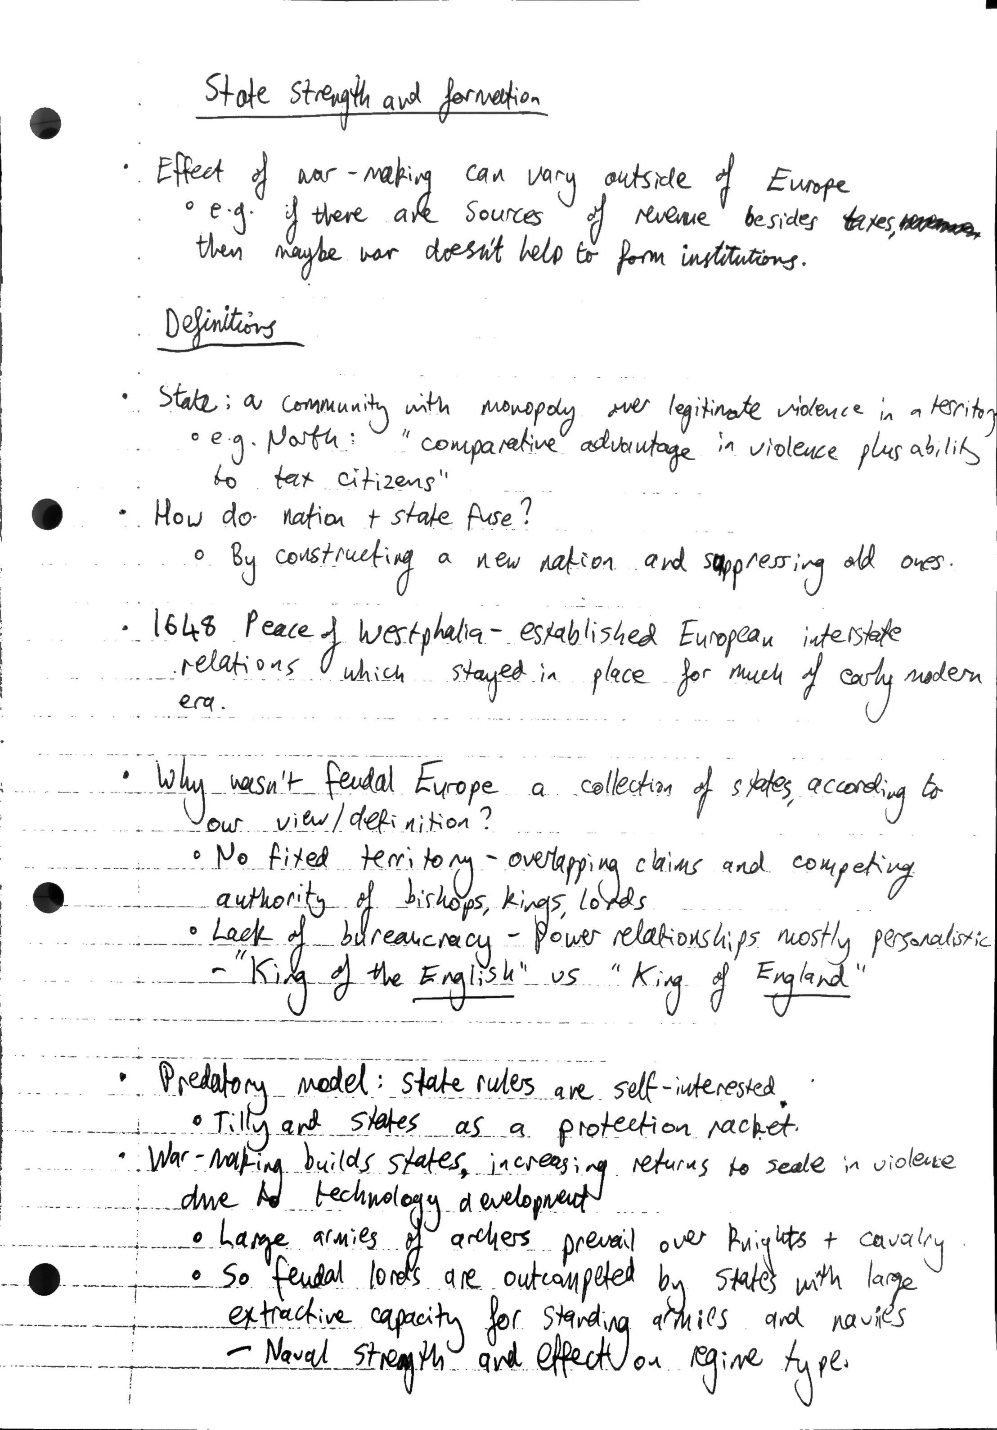 State strength and formation
• Effect of war-making can vary outside of Europe
◦ e.g. if there are sources of revenue besides taxes,
then maybe war doesn't help to form institutions.
Definitions
• State: a community with monopoly over legitimate violence in a territory
◦ e.g. North: "comparative advantage in violence plus ability
to tax citizens"
• How do nation + state fuse?
◦ By constructing a new nation and suppressing old ones.
• 1648 Peace of Westphalia - established European interstate
relations which stayed in place for much of early modern
era.
• Why wasn't feudal Europe a collection of states, according to
our view/definition?
◦ No fixed territory - overlapping claims and competing
authority of bishops, kings, lords
◦ Lack of bureaucracy - Power relationships mostly personalistic
- "King of the English" vs "King of England"
• Predatory model: state rulers are self-interested.
◦ Tilly and states as a protection racket.
• War-making builds states, increasing returns to scale in violence
due to technology development
◦ Large armies of archers prevail over knights + cavalry.
◦ So feudal lords are outcompeted by states with large
extractive capacity for standing armies and navies
- Naval strength and effect on regime type.